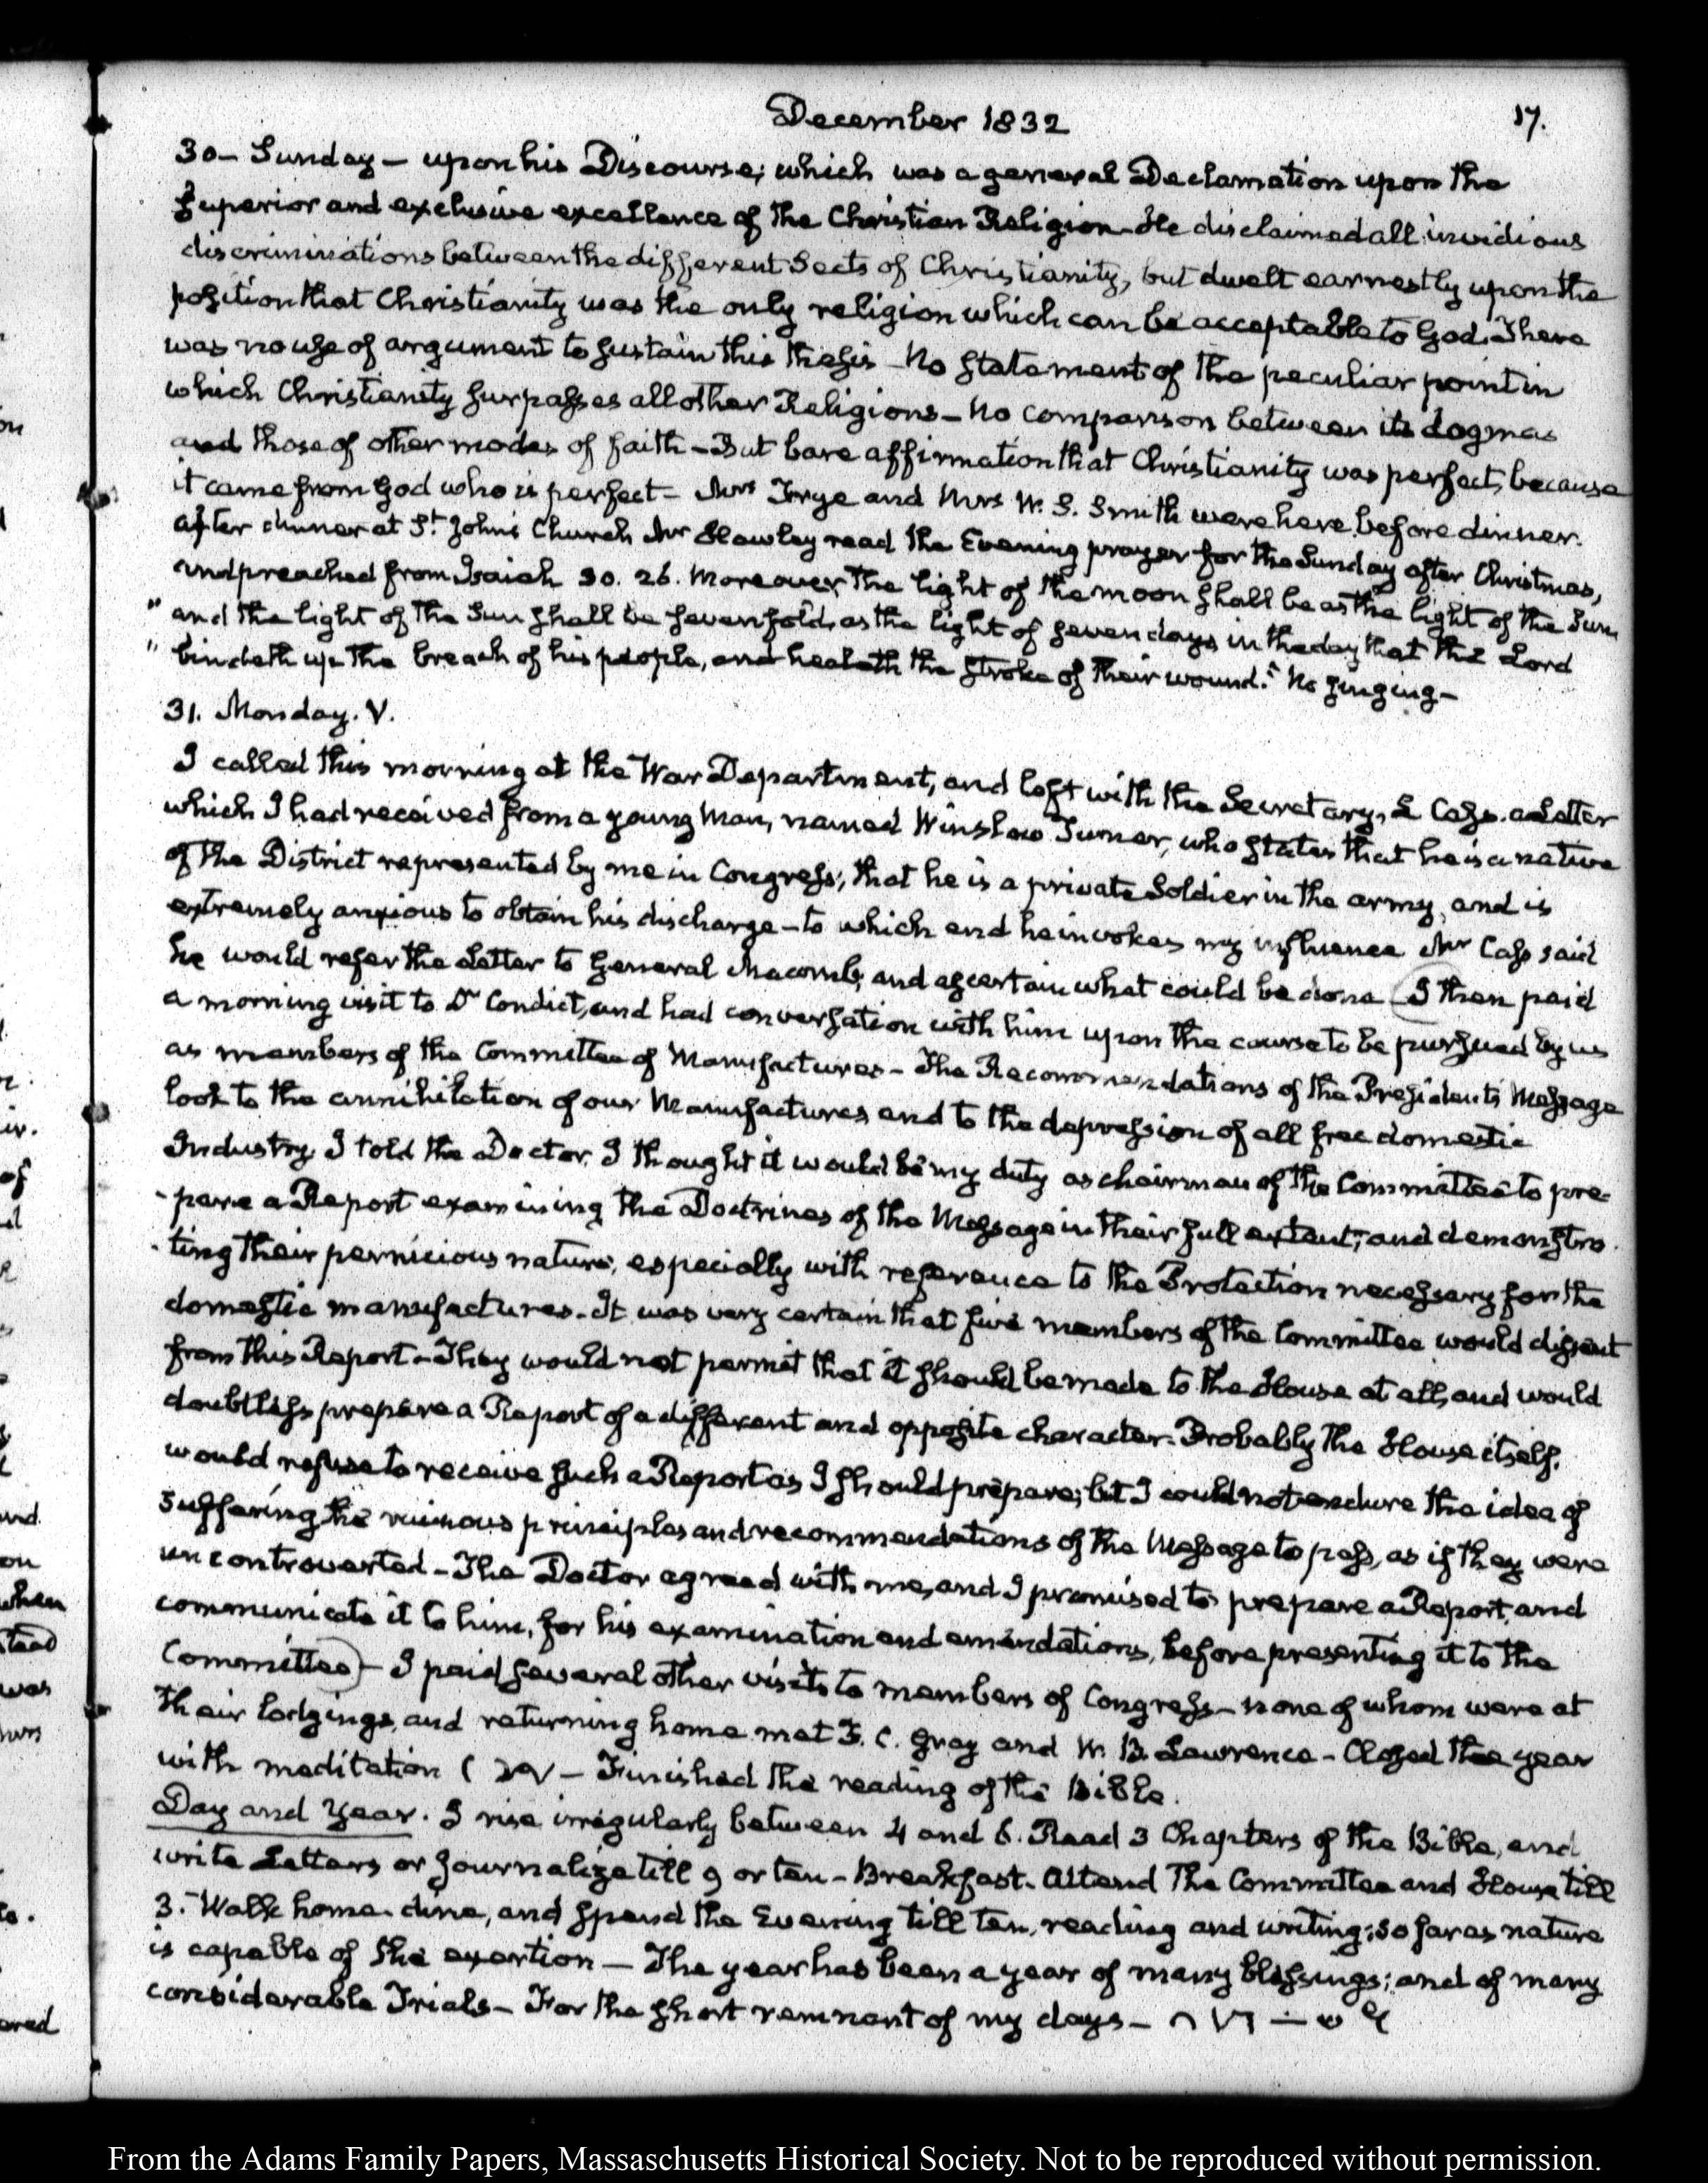 December 1832
17.
30 – Sunday – upon his Discourse; which was a general Declamation upon the
superior and exclusive excellence of the Christian Religion – He disclaimed all invidious
discriminations between the different Sects of Christianity, but dwelt earnestly upon the
position that Christianity was the only religion which can be acceptable to God. There
was no use of argument to sustain this thesis – No statement of the peculiar point in
which Christianity surpasses all other Religions – No comparison between its dogmas
and those of other modes of faith – But bare affirmation that Christianity was perfect, because
it came from God who is perfect – Mrs Frye and Mrs W. S. Smith were here before dinner.
after dinner at St. John's Church Mr Hawley read the Evening prayer for the Sunday after Christmas,
and preached from Isaiah 30. 26. Moreover the light of the moon shall be as the light of the Sun,
" and the light of the Sun shall be sevenfold, as the light of seven days, in the day that the Lord
" bindeth up the breach of his people, and healeth the stroke of their wound." No singing –
31. Monday. V.
I called this morning at the War Department, and left with the Secretary, L Cass. a Letter
which I had received from a young Man, named Winslow Turner, who states that he is a native
of the District represented by me in Congress, that he is a private Soldier in the army, and is
extremely anxious to obtain his discharge – to which end he invokes my influence Mr Cass said
he would refer the Letter to General Macomb, and ascertain what could be done – I then paid
a morning visit to Dr Condict, and had conversation with him upon the course to be pursued by us
as members of the Committee of Manufactures – The Recommendations of the President's Message
look to the annihilation of our Manufactures and to the depression of all free domestic
Industry. I told the Doctor I thought it would be my duty as chairman of the Committee to pre-
-pare a Report examining the Doctrines of the Message in their full extent, and demonstra-
-ting their pernicious nature, especially with reference to the Protection necessary for the
domestic manufactures. It was very certain that five members of the Committee would dissent
from this Report – They would not permit that it should be made to the House at all, and would
doubtless prepare a Report of a different and opposite character. Probably the House itself
would refuse to receive such a Report as I should prepare; but I could not endure the idea of
suffering the ruinous principles and recommendations of the Message to pass, as if they were
uncontroverted – The Doctor agreed with me, and I promised to prepare a Report, and
communicate it to him, for his examination and emendations, before presenting it to the
Committee) – I paid several other visits to members of Congress – none of whom were at
their lodgings, and returning home met F. C. Gray and W. B. Lawrence – Closed the year
with meditation – Finished the reading of the Bible.
Day and Year. I rise irregularly between 4 and 6. Read 3 Chapters of the Bible, and
write Letters or Journalize till 9 or ten – Breakfast. Attend the Committee and House till
3. Walk home. dine, and spend the Evening till ten, reading and writing; so far as nature
is capable of the exertion – The year has been a year of many blessings; and of many
considerable Trials – For the short remnant of my days –
From the Adams Family Papers, Massachusetts Historical Society. Not to be reproduced without permission.